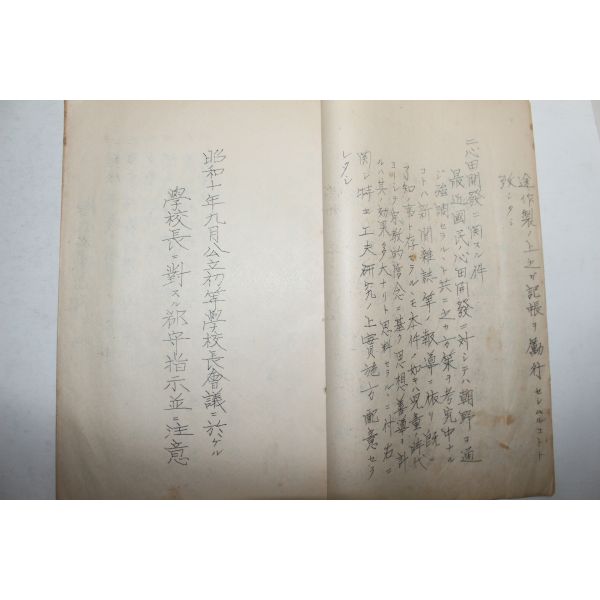 途作製ノ上之ガ記帳ヲ勵行セシムルコト
致シタシ
二、心田開發ニ関スル件
最近國民ノ心田開發ニ対シテハ朝野ヲ通
ジ強調セラルルト共ニ之ガ方策ヲ考究中ナル
コトハ新聞雑誌等ノ報導ニ依リ既ニ
了知ノ事ト存セラルルモ本件ノ如キハ児童時代
ヨリシテ宗教的信念ニ基ク思想善導ヲ計
ルハ其ノ効果多大ナリト思料セラルルニ付右ニ
関シ特ニ工夫研究ノ上實施方配意セラ
レタシ
昭和十年九月公立初等學校長會議ニ於ケル
學校長ニ對スル郡守指示並ニ注意